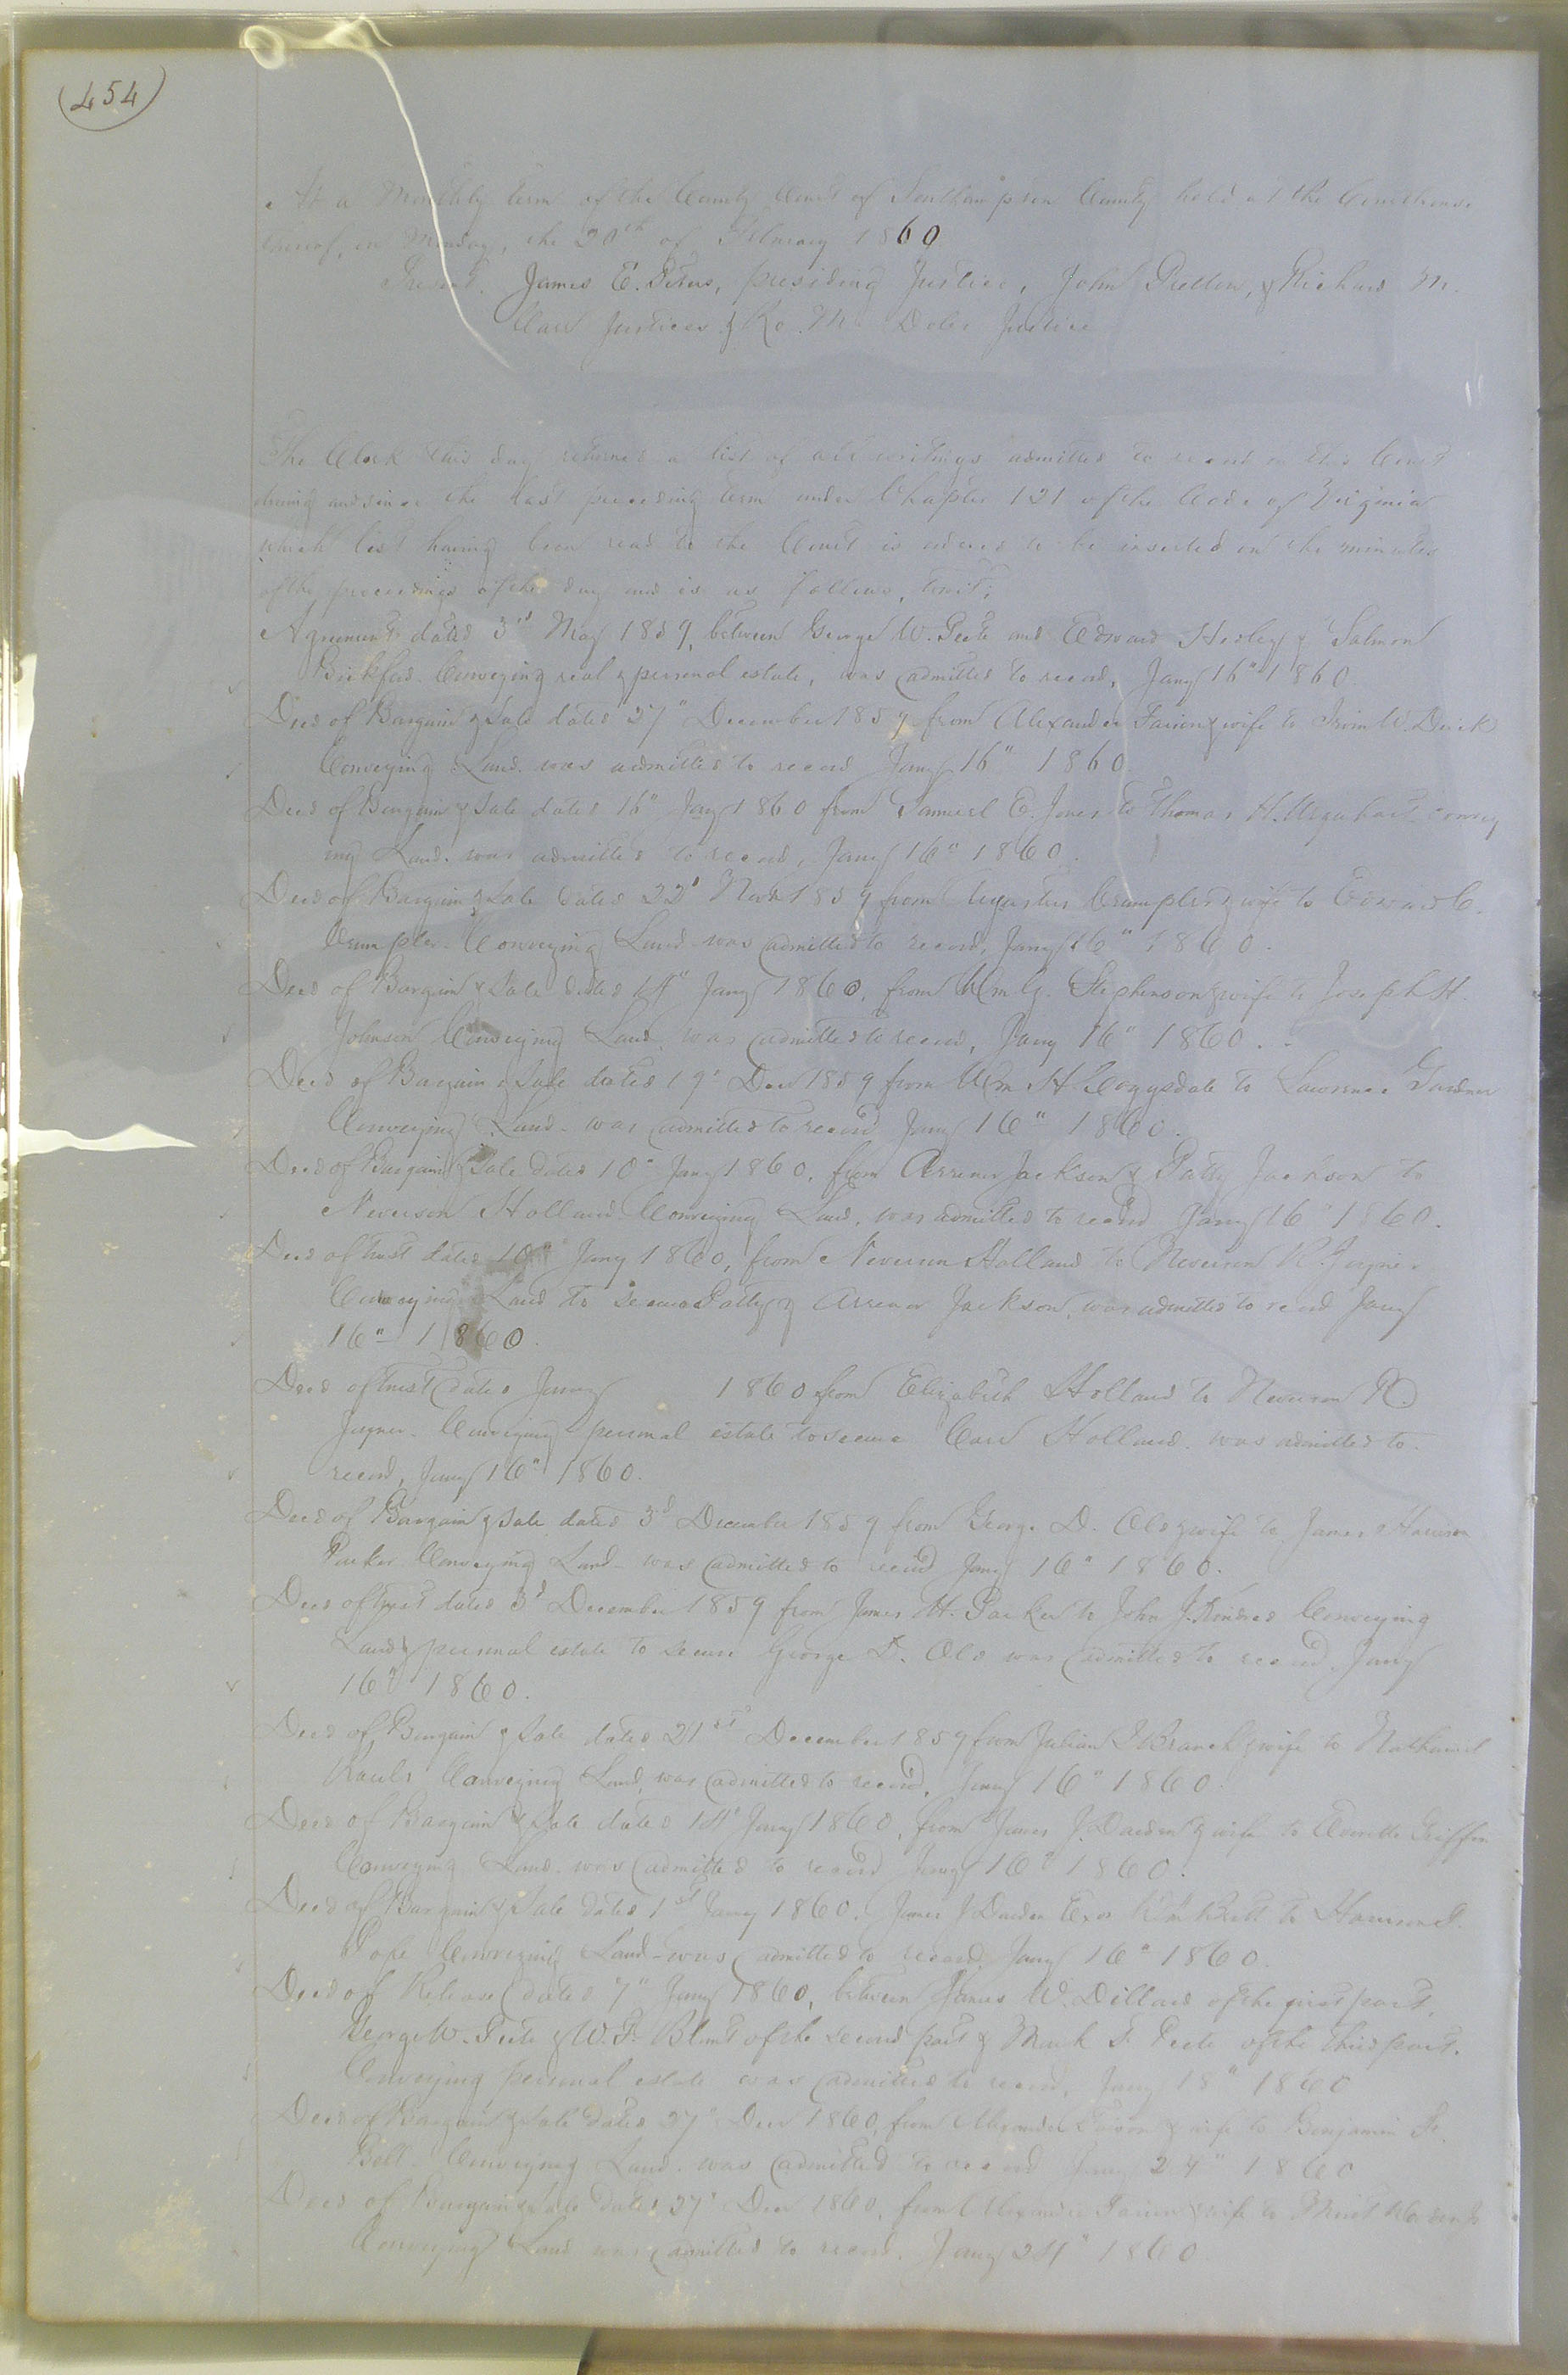 (454)
At a Monthly term of the County Court of Southampton County held at the Courthouse
thereof, on Monday, the 20th of February 1860
Present. James E. Peters, presiding Justice, John Pretlow, & Richard M.
Carr Justices & Ro. M. Doles Justice
The Clerk this day returned a list of all writings admitted to record in this Court
during and since the last preceding term under Chapter 121 of the Code of Virginia
which list having been read to the Court is ordered to be inserted in the minutes
of the proceedings of the day and is as follows, towit;
Agreement dated 3rd May 1859, between George W. Peete and Edward Hosley & Salmon
Bickford. Conveying real & personal estate, was admitted to record, Jany 16" 1860.
Deed of Bargain & Sale dated 27" December 1859 from Alexander & wife to W. Derick
Conveying Land. was admitted to record Jany 16" 1860.
Deed of Bargain & Sale dated 16" Jany 1860 from Samuel E. Jones to Thomas H. Urquhart convey
ing Land. was admitted to record, Jany 16" 1860.
Deed of Bargain & Sale dated 22d Nov 1859 from Crumpler & wife to Edward C.
Crumpler. Conveying Land was admitted to record, Jany 16" 1860.
Deed of Bargain & Sale dated 14" Jany 1860, from Wm G. Stephenson & wife to Joseph H.
Johnson Conveying Land. was admitted to record, Jany 16" 1860.
Deed of Bargain & Sale dated 19" Dec 1859 from Wm H. to Lawrence Gardner
Conveying Land. was admitted to record Jany 16" 1860.
Deed of Bargain & Sale dated 10" Jany 1860, from Arrena Jackson & Patty Jackson to
Neverson Holland Conveying Land, was admitted to record Jany 16" 1860.
Deed of trust dated 10" Jany 1860, from Neverson Holland to Neverson R. Joyner.
Conveying Land to secure Patty & Arrena Jackson, was admitted to record Jany
16" 1860.
Deed of trust dated Jany 1860 from Elizabeth Holland to Neverson R.
Joyner. Conveying personal estate to secure Holland. was admitted to
record, Jany 16" 1860.
Deed of Bargain & Sale dated 3d December 1859 from George D. Old & wife to James Harrison
Parker Conveying Land was admitted to record Jany 16" 1860.
Deed of trust dated 3d December 1859 from James H. Parker to John J. Kindred Conveying
Land & personal estate to secure George D. Old was admitted to record, Jany
16" 1860.
Deed of Bargain & Sale dated 21st December 1859 from Julian Branch & wife to Nathaniel
Rauls Conveying Land, was admitted to record, Jany 16" 1860.
Deed of Bargain & Sale dated 14" Jany 1860, from James J. Darden & wife to Everette Griffin
Conveying Land. was admitted to record Jany 16" 1860.
Deed of Bargain & Sale dated 1st Jany 1860. James J Darden Exor to Harrison P.
Pope Conveying Land was admitted to record Jany 16" 1860.
Deed of Release dated 7" Jany 1860, between James W. Dillard of the first part,
George W. Peete & W. P. Blunt of the second part & Mark S. Peete of the third part.
Conveying personal estate was admitted to record, Jany 18" 1860
Deed of Bargain & Sale dated 27" Decr 1860, from Alexander & wife to Benjamin F.
Bell. Conveying Land. was admitted to record Jany 24" 1860
Deed of Bargain & Sale dated 27" Decr 1860, from Alexander & wife to
Conveying Land was admitted to record. Jany 24" 1860.